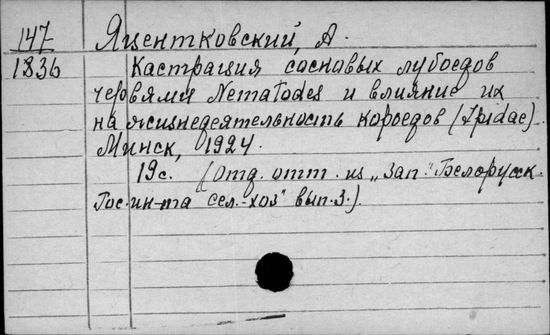 147 Яцентковский, А.
1836 Кастрация сосновых лубоедов
червями Nematodes и влияние их
на жизнедеятельность короедов (Ipidae).
Минск, 1924.
19с. (Отд. отт. из „Зап." Белорусск.
Гос. ин-та сел.-хоз" вып. 3.).